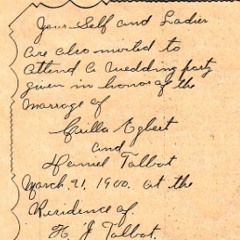 Your Self and Ladies
are also invited to
attend a wedding party
given in honor of the
marrage of
Quilla Egbert
and
Daniel Talbot
March, 21, 1900. at the
Residence of
H J Talbot.